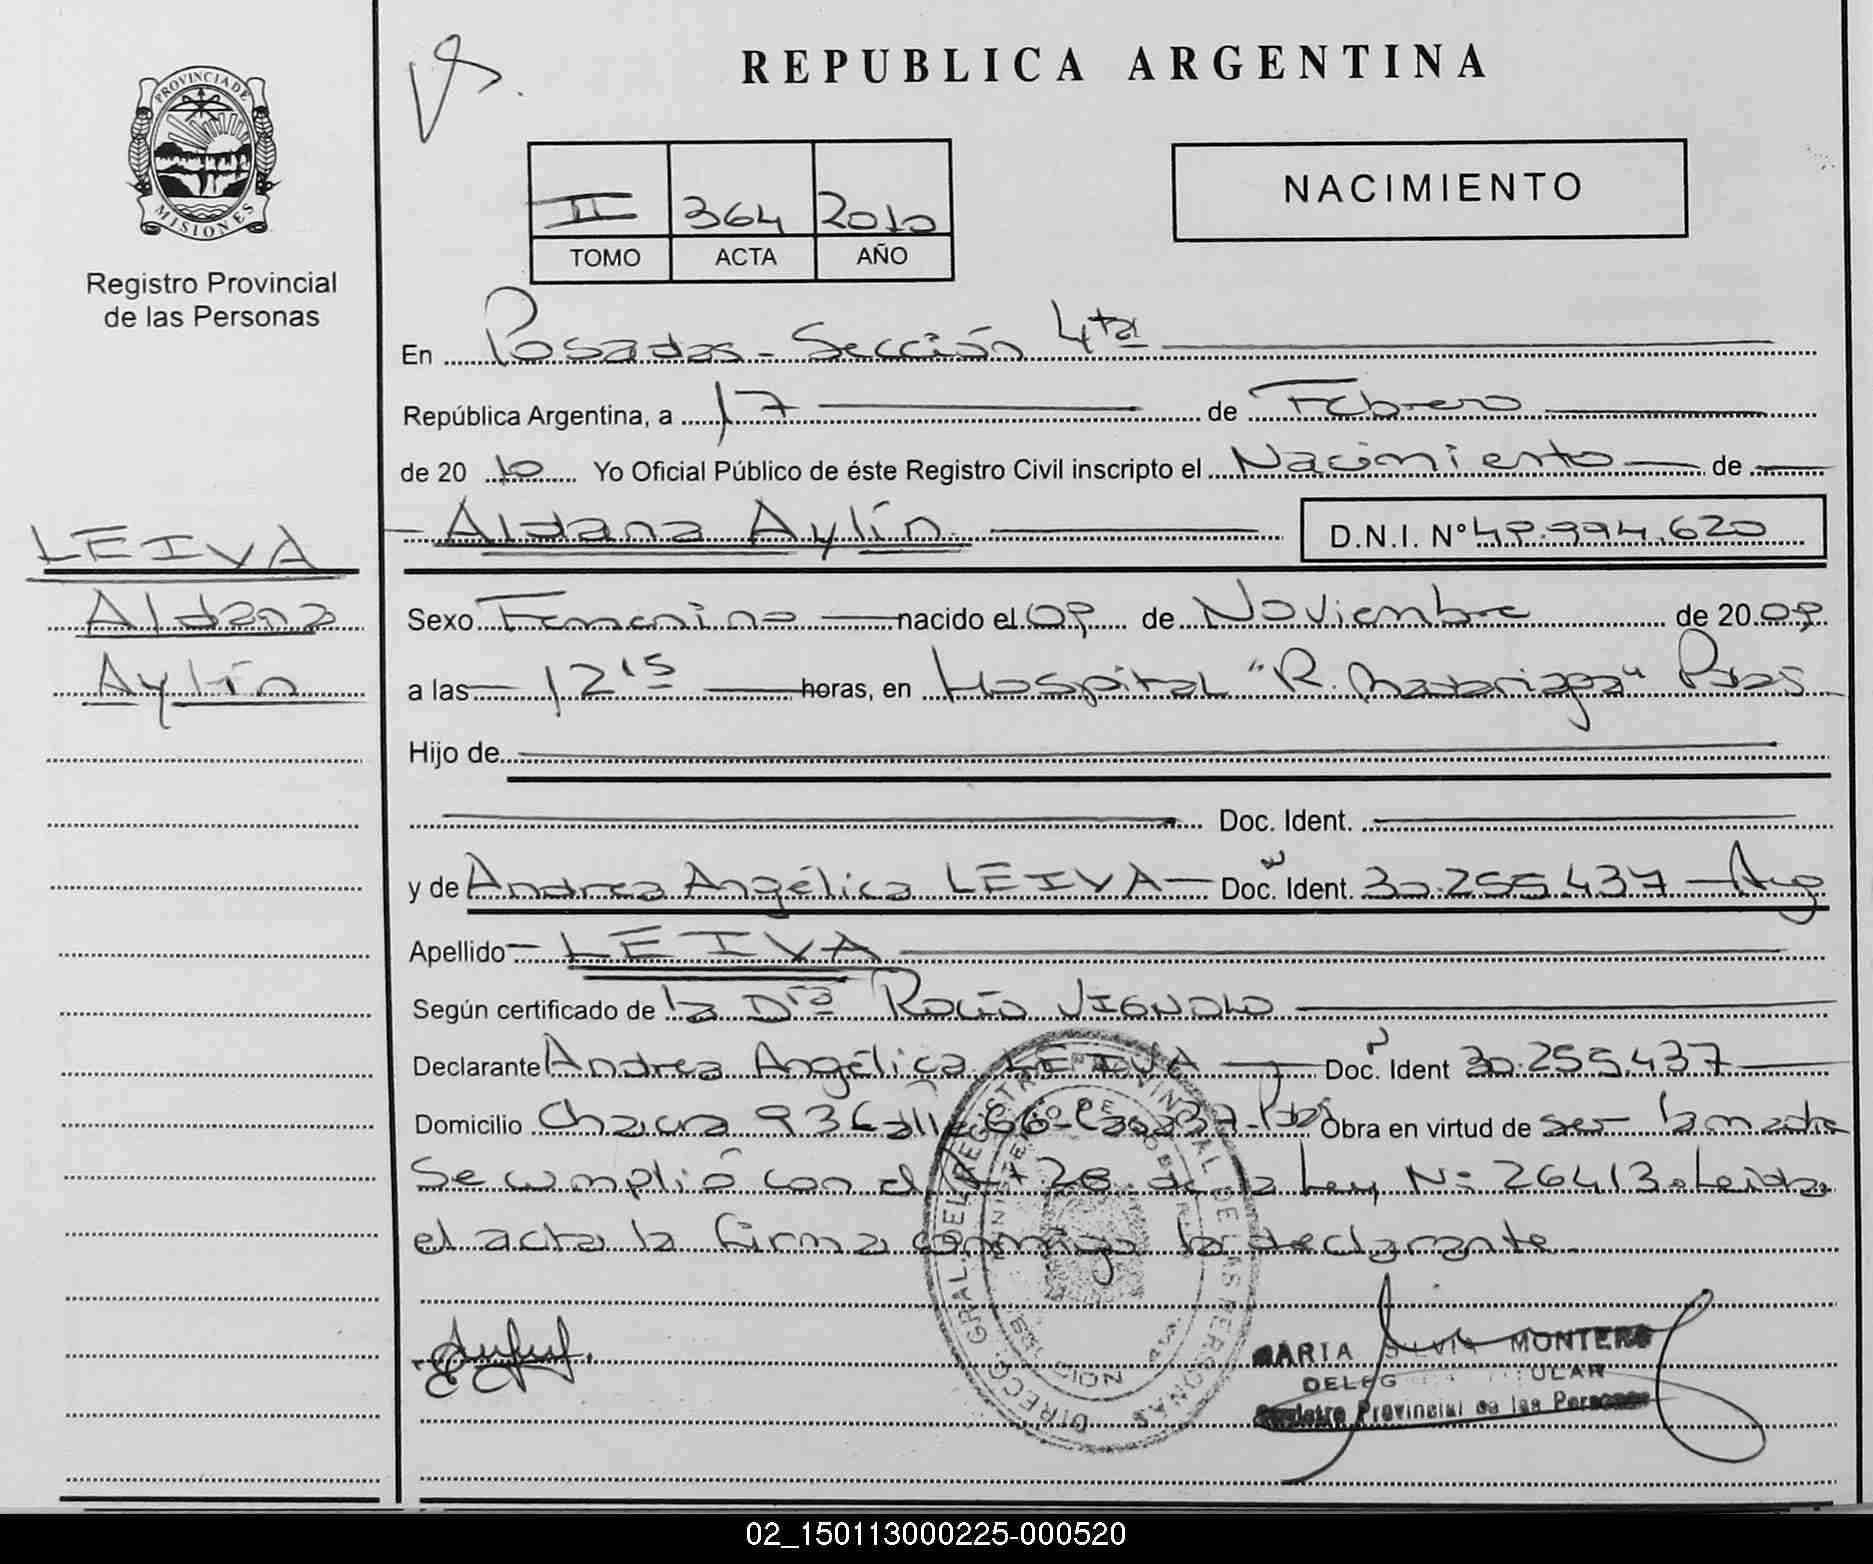 PROVINCIA DE
MISIONES
Registro Provincial
de las Personas
LEIVA
Aldana
Aylín
REPUBLICA ARGENTINA
II 364 2010
TOMO ACTA AÑO
NACIMIENTO
En Posadas - Sección 4ta
República Argentina, a 17 de Febrero
de 20 10 Yo Oficial Público de éste Registro Civil inscripto el Nacimiento de
Aldana Aylín.
D.N.I. Nº 49.994.620
Sexo Femenino nacido el 09 de Noviembre de 20 09
a las 12 15 horas, en Hospital "R. Madariaga" Pdas
Hijo de
Doc. Ident.
y de Andrea Angélica LEIVA Doc. Ident. 30.255.437 Arg
Apellido LEIVA
Según certificado de la Dra Rocío VIGNOLO
Declarante Andrea Angélica LEIVA Doc. Ident 30.255.437
Domicilio Chacra 93 Calle 66 - Casa 37 - Pdas Obra en virtud de ser la madre
Se cumplió con el Art 28 de la Ley Nº 26413. Leída
el acta la firma conmigo la declarante.
DIRECC. GRAL. DEL REGISTRO PROVINCIAL DE LAS PERSONAS
MINISTERIO DE GOBIERNO
MARIA SILVIA MONTERO
DELEGADA TITULAR
Registro Provincial de las Personas
02_150113000225-000520